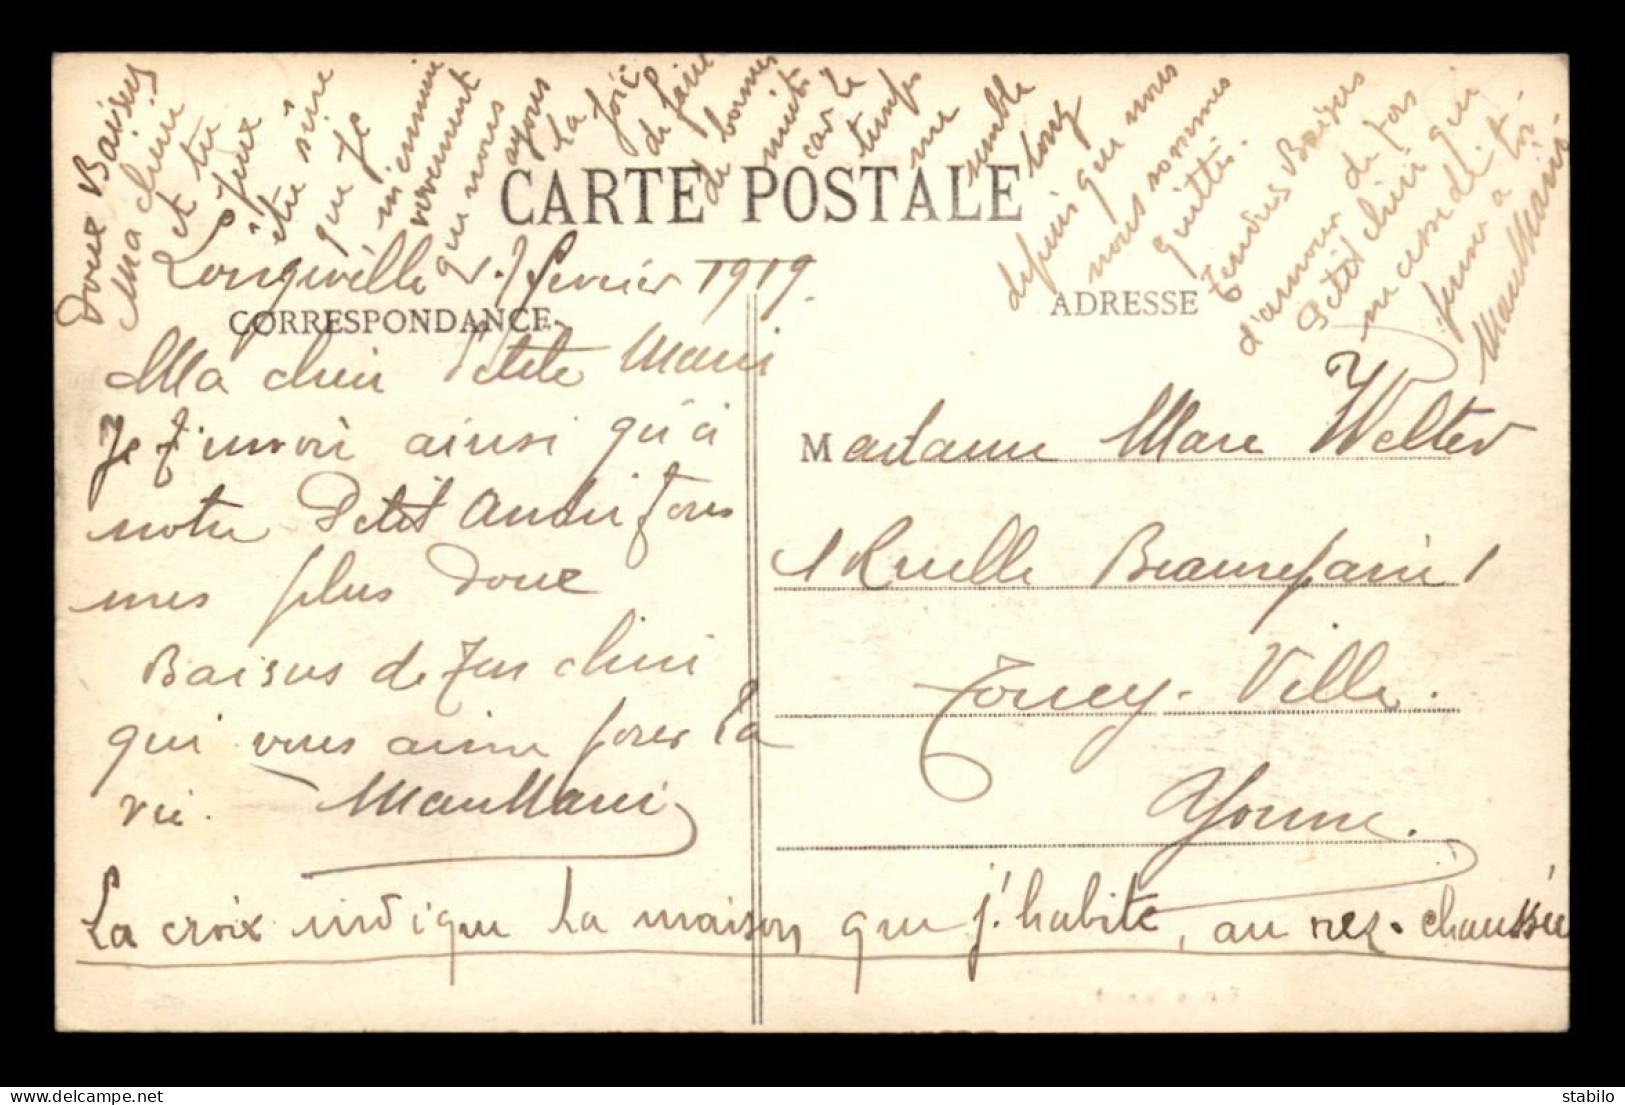 Doux Baisers
Ma chérie
et tu
peux
être sûre
que je
m'ennuie
vivement
que nous
ayons
la joie
de faire
de bonnes
nuits
car le
temps
me
semble
long
depuis que nous
nous sommes
quittés.
Tendres Baisers
d'amour de ton
Petit chéri qui
ne cesse de
penser à toi.
CARTE POSTALE
Longwille 7 février 1919.
CORRESPONDANCE
ADRESSE
Ma chéri Petite
Je t'envoie ainsi qu'à
notre Petit André tous
mes plus doux
Baisers de ton chéri
qui vous aime pour la
vie.
Madame Marc Welter
1 Ruelle 1
Toucy-Ville.
Yonne.
La croix indique la maison que j'habite, au rez-chaussée